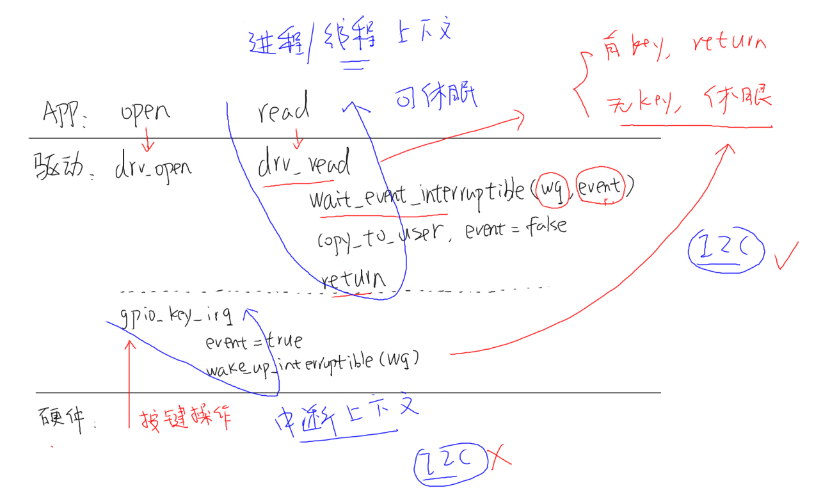 进程/线程 上下文
有key, return
无key, 休眠
APP: open read 可休眠
驱动: drv_open drv_read
wait_event_interruptible(wq, event)
copy_to_user, event = false
return
I2C
gpio_key_irq
event = true
wake_up_interruptible(wq)
硬件: 按键操作 中断上下文
I2C